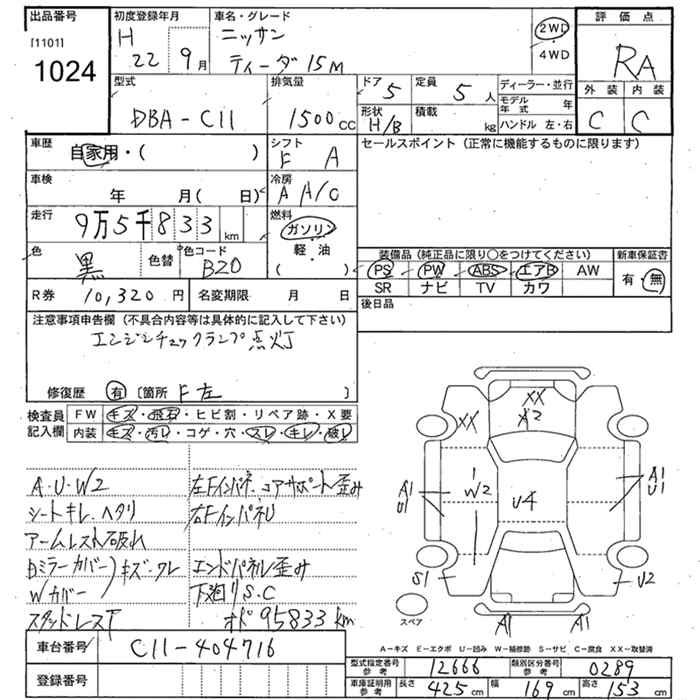 出品番号
[1101]
1024
初度登録年月
H 22 9月
車名・グレード
ニッサン
ティーダ 15M
2WD
・
4WD
評価点
RA
外装 内装
C C
型式
DBA-C11
排気量
1500cc
ドア 5
定員 5人
形状 H/B
積載 kg
ディーラー・並行
モデル年式 年
ハンドル 左・右
車歴
自家用・( )
シフト
F A
セールスポイント (正常に機能するものに限ります)
車検
年 月( 日)
冷房
A A/C
走行
9万5千833km
燃料
ガソリン
軽・油
( )
色
黒
色替
色コード
B20
装備品 (純正品に限り○をつけてください)
新車保証書
PS PW ABS エアB AW
SR ナビ TV カワ
有・無
R券 10,320円
名変期限 月 日
後日品
注意事項申告欄 (不具合内容等は具体的に記入して下さい)
エンジンチェックランプ点灯
修復歴 有 [箇所 F左 ]
検査員記入欄
FW キズ・飛石・ヒビ割・リペア跡・X要
内装 キズ・汚レ・コゲ・穴・スレ・キレ・破レ
A・U・W2
シートキレ、ヘタリ
アームレスト破れ
Dミラーカバー キズ・ワレ
Wカバー
スタッドレス下
左Fインパネ、コアサポート歪み
右FインパネU
エンドパネル歪み
下廻りS.C
オド95833km
XX
X2
XX
A1
U1
W2
U4
A1
U1
S1
U2
A1
A1
スペア
A－キズ E－エクボ U－凹み W－補修跡 S－サビ C－腐食 XX－取替済
車台番号 C11-404716
登録番号
型式指定番号参考 12666
類別区分番号参考 0289
車庫証明用参考 長さ 425cm 幅 169cm 高さ 153cm